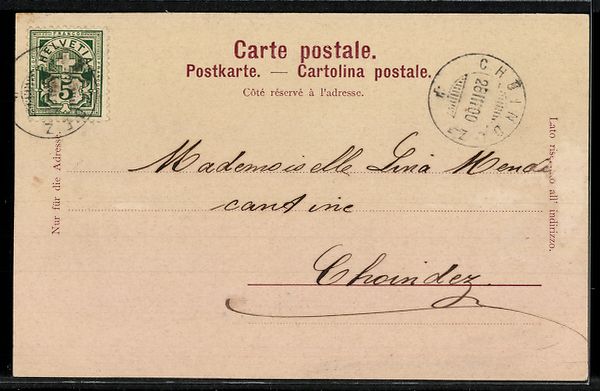 HELVETIA
FRANCO
5
Carte postale.
Postkarte. — Cartolina postale.
Côté réservé à l'adresse.
CHOINDEZ
26 II 00
Nur für die Adresse.
Mademoiselle Lina Mende
cantine
Choindez
Lato riservato all' indirizzo.